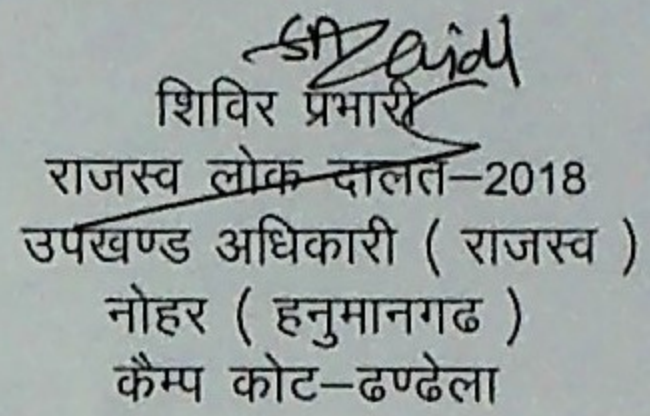 शिविर प्रभारी
राजस्व लोक दालत–2018
उपखण्ड अधिकारी ( राजस्व )
नोहर ( हनुमानगढ )
कैम्प कोट–ढण्ढेला